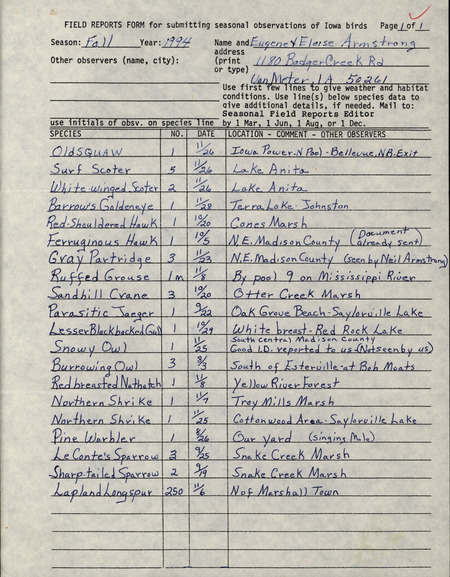 FIELD REPORTS FORM for submitting seasonal observations of Iowa birds Page 1 of 1
Season: Fall Year: 1994 Name and Eugene & Eloise Armstrong
address
Other observers (name, city): (print 1180 Badger Creek Rd
or type)
Van Meter, IA 50261
Use first few lines to give weather and habitat
conditions. Use line(s) below species data to
give additional details, if needed. Mail to:
Seasonal Field Reports Editor
use initials of obsv. on species line by 1 Mar, 1 Jun, 1 Aug, or 1 Dec.
SPECIES NO. DATE LOCATION - COMMENT - OTHER OBSERVERS
Oldsquaw 1 11/26 Iowa Power-N Pool-Bellevue, NB. Exit
Surf Scoter 5 11/26 Lake Anita
White-winged Scoter 2 11/26 Lake Anita
Barrow's Goldeneye 1 11/28 Terra Lake-Johnston
Red-Shouldered Hawk 1 10/20 Cones Marsh
Ferruginous Hawk 1 10/5 N.E. Madison County (Document already sent)
Gray Partridge 3 11/23 N.E. Madison County (seen by Neil Armstrong)
Ruffed Grouse 1m 11/8 By pool 9 on Mississippi River
Sandhill Crane 3 10/20 Otter Creek Marsh
Parasitic Jaeger 1 9/22 Oak Grove Beach-Saylorville Lake
Lesser Black backed Gull 1 10/29 White breast-Red Rock Lake
South Central Madison County
Snowy Owl 1 11/25 Good I.D. reported to us (Not seen by us)
Burrowing Owl 3 8/3 South of Esterville-at Bob Moats
Red breasted Nuthatch 1 11/8 Yellow River Forest
Northern Shrike 1 11/7 Troy Mills Marsh
Northern Shrike 1 11/25 Cottonwood Area-Saylorville Lake
Pine Warbler 1 8/26 Our yard (Singing Male)
Le Conte's Sparrow 3 9/25 Snake Creek Marsh
Sharp-tailed Sparrow 2 9/19 Snake Creek Marsh
Lapland Longspur 250 11/6 N of Marshall Town